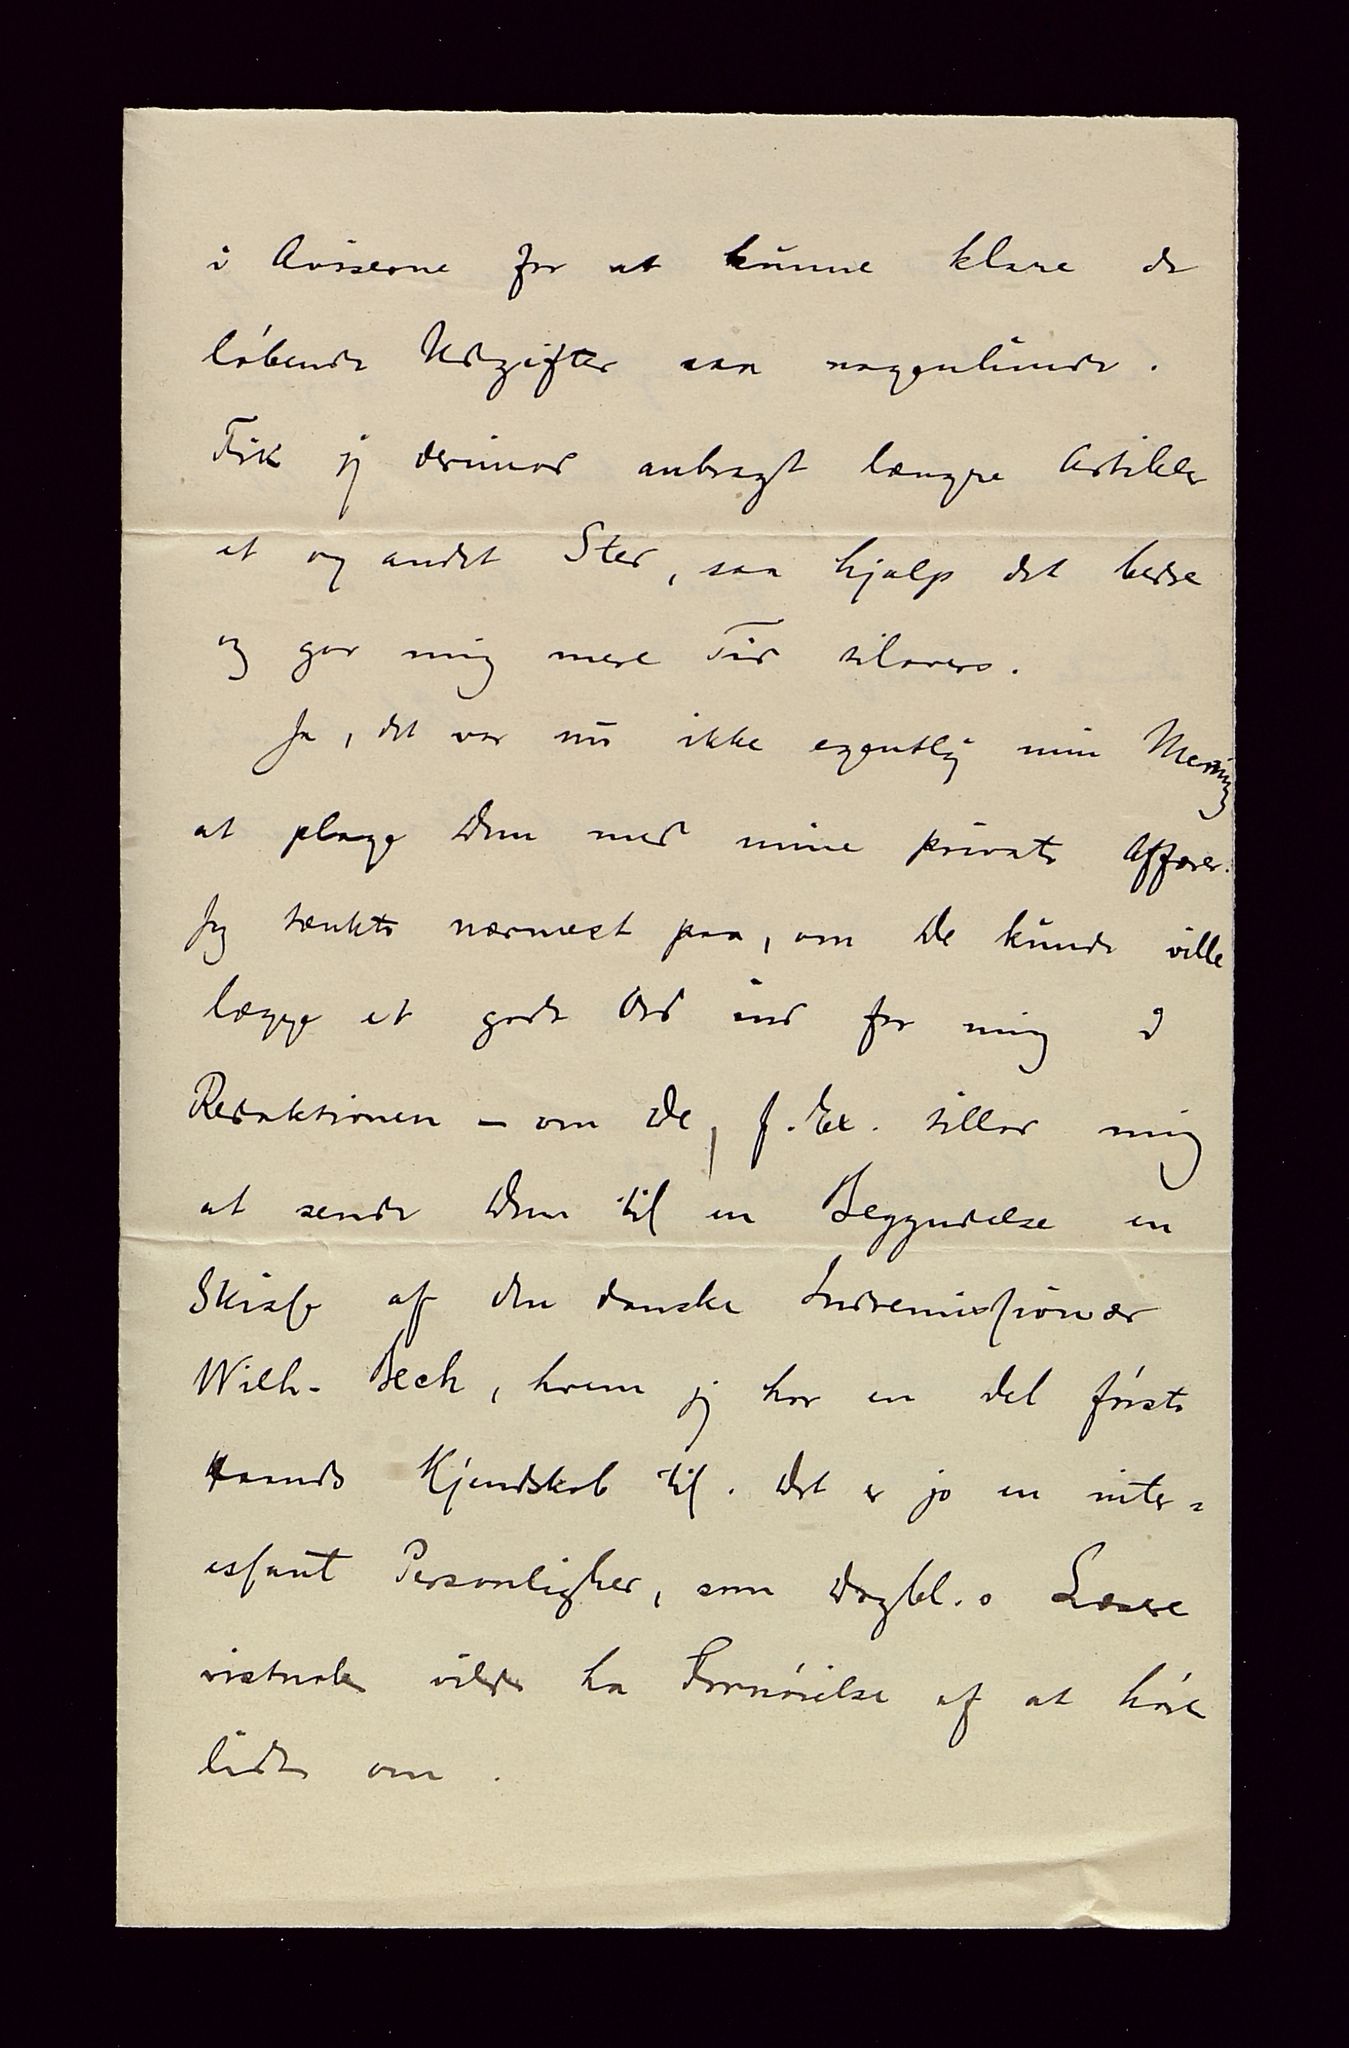 i Aviserne for at kunne klare de
løbende Udgifter saa nogenlunde.
Fik jeg derimod anbragt længre Artikler
et og andet Sted, saa hjalp det bedre
og gav mig mere Tid tilovers.
Ja, det var nu ikke egentlig min Mening
at plage Dem med mine private Affærer.
Jeg tænkte nærmest paa, om De kunde ville
lægge et godt Ord ind for mig i
Redaktionen – om De, f. Ex. tillod mig
at sende Dem til en Begyndelse en
Skisse af den danske Indremissionær
Wilh. Beck, hvem jeg har en del første
Haands Kjendskab til. Det er jo en inter-
essant Personlighed, som Dagbl.s Læsere
vistnok vilde ha Fornøielse af at høre
lidt om.